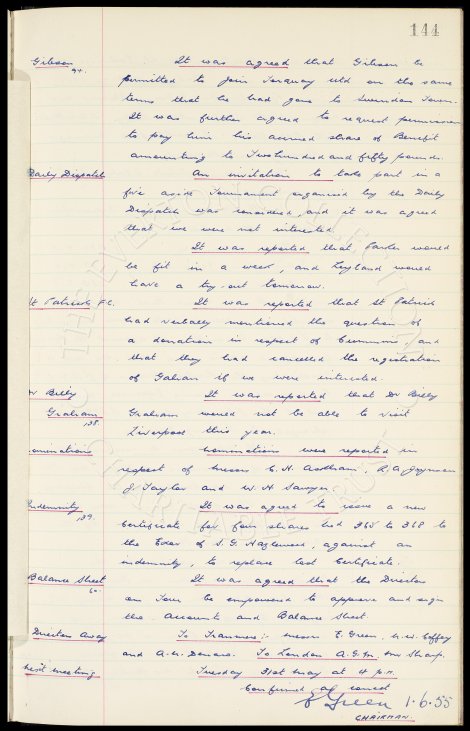 144
Gibson
94.
It was agreed that Gibson be
permitted to join Torquay Utd on the same
terms that he had gone to Swindon Town.
It was further agreed to request permission
to pay him his accrued share of Benefit
amounting to Two hundred and fifty pounds.
Daily Dispatch
An invitation to take part in a
five aside Tournament organised by the Daily
Dispatch was considered, and it was agreed
that we were not interested.
It was reported that Parker would
be fit in a week, and Leyland would
have a try-out tomorrow.
St Patricks F.C.
It was reported that St Patricks
had verbally mentioned the question of
a donation in respect of Cummins, and
that they had cancelled the registration
of if we were interested.
Dr Billy
Graham
138.
It was reported that Dr Billy
Graham would not be able to visit
Liverpool this year.
Nominations
Nominations were reported in
respect of Messrs C. H. R. A.
J Taylor and W. H. Sawyer
Indemnity
139
It was agreed to issue a new
Certificate for four shares Nod 365 to 368 to
the Exor of S. G. Hazlewood, against an
indemnity, to replace lost Certificate.
Balance Sheet
It was agreed that the Directors
on Tour be empowered to approve and sign
the Accounts and Balance Sheet.
Directors Away
To Tranmere:- Messrs E. Green, N. W. Coffey
and A. W. Denaro. To London A.G.M. Mr Sharp.
Next meeting
Tuesday 31st May at 4 p.m.
Confirmed as correct
E Green 1.6.55
CHAIRMAN.
THE EVERTON COLLECTION
CHARITABLE TRUST